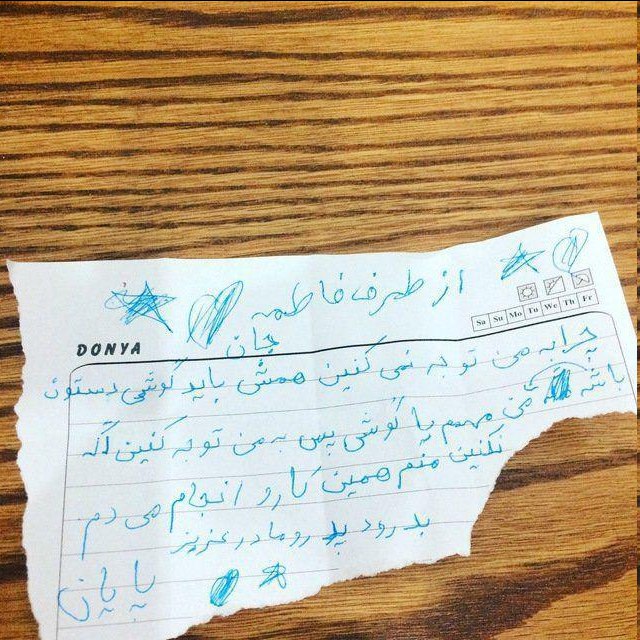 از طرف فاطمه
جان
Sa Su Mo Tu We Th Fr
DONYA
چرا به من توجه نمی کنین همش باید گوشی دستون
باشه من مهمم یا گوشی پس به من توجه کنین اگه
نکنین منم همین کارو انجام می دم
بدرود پدر و مادر عزیز
پایان